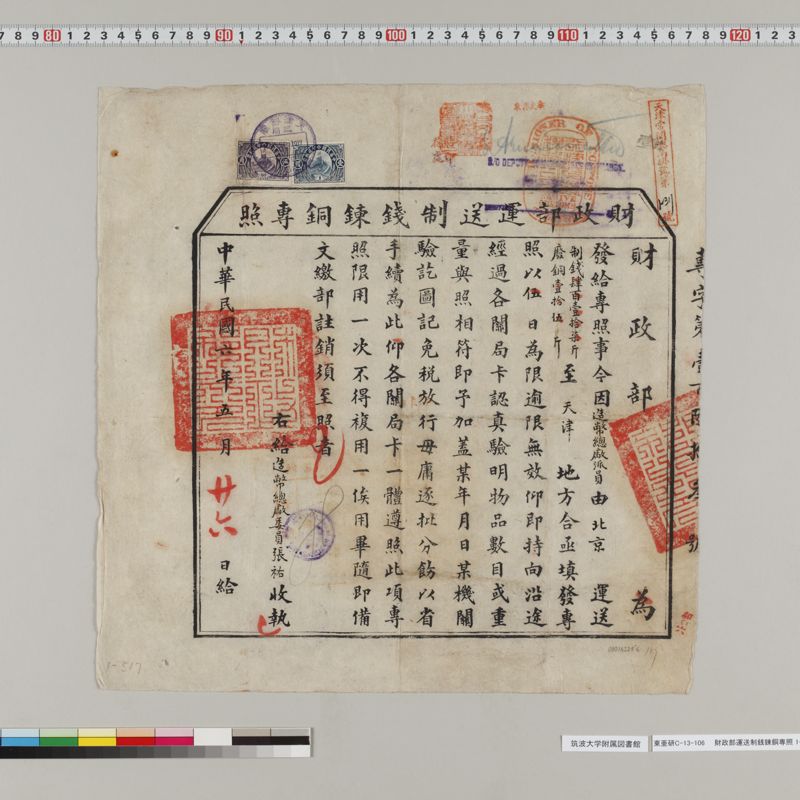 財政部運送制錢鍊銅專照
財政部 為
發給專照事今因造幣總廠派員由北京 運送
制錢肆百壹拾柒斤
廢銅壹拾伍斤
至 天津 地方合亟填發專
照以伍日為限逾限無效仰即持向沿途
經過各關局卡認真驗明物品數目或重
量與照相符即予加蓋某年月日某機關
驗訖圖記免稅放行毋庸逐批分飭以省
手續為此仰各關局卡一體遵照此項專
照限用一次不得複用一俟用畢隨即備
文繳部註銷須至照者
右給造幣總廠委員張祐 收執
中華民國六年五月廿六日給
號
1-517
筑波大学附属図書館
東亜研C-13-106 財政部運送制銭錬銅専照 1-
7 8 9 80 1 2 3 4 5 6 7 8 9 90 1 2 3 4 5 6 7 8 9 100 1 2 3 4 5 6 7 8 9 110 1 2 3 4 5 6 7 8 9 120 1 2